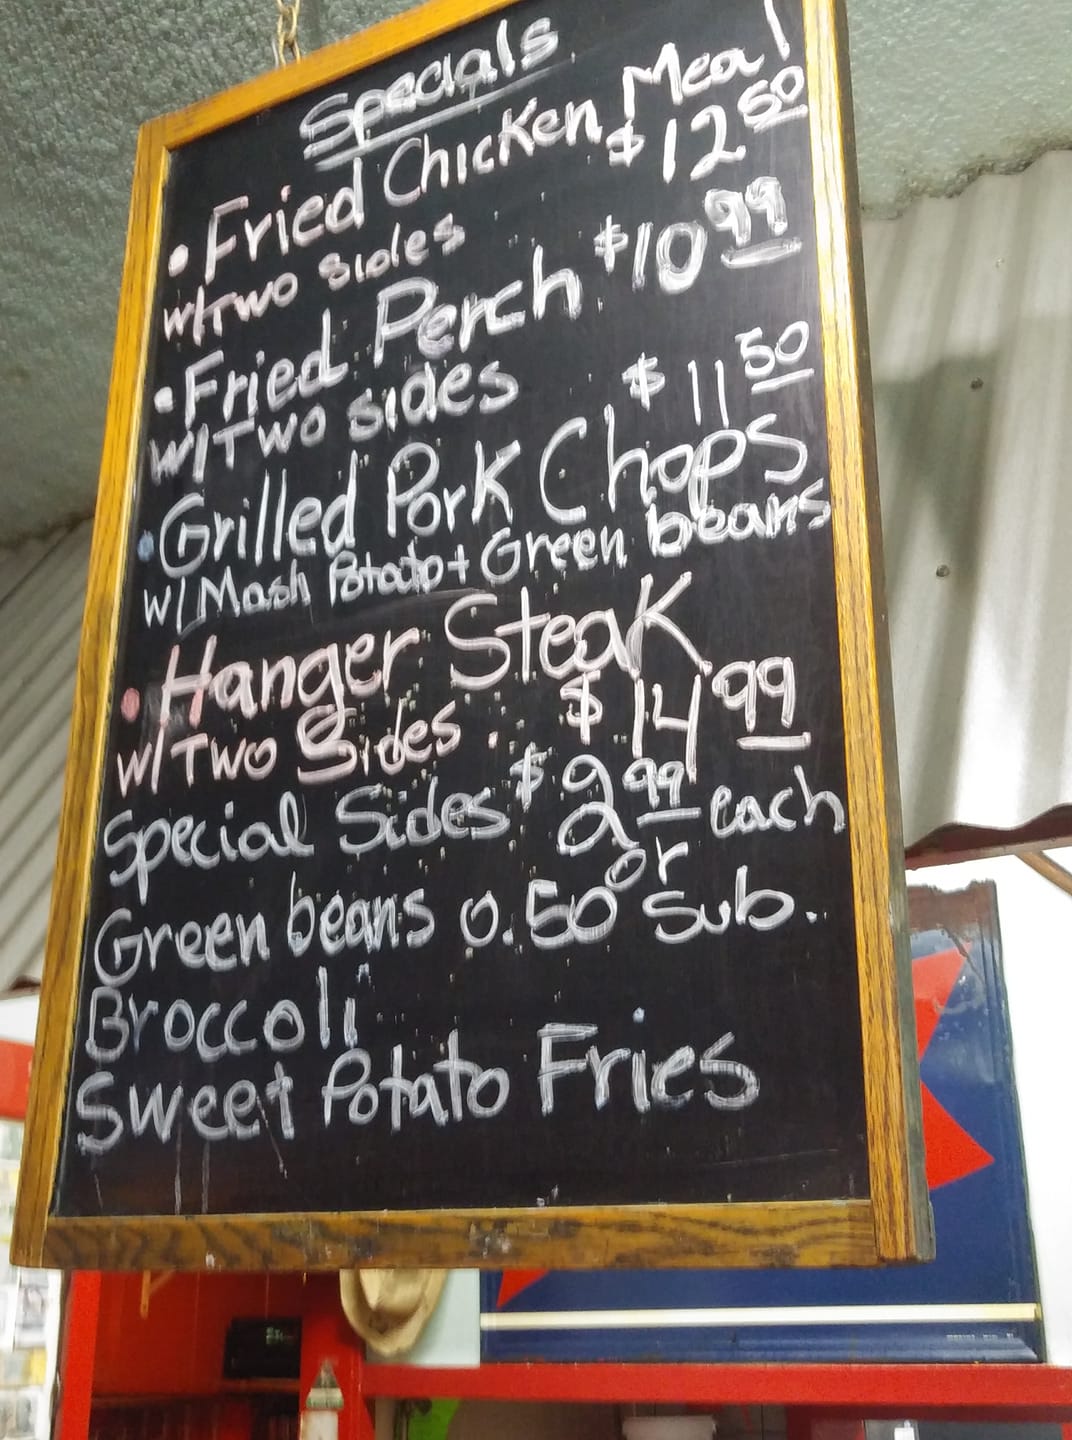 Specials
• Fried Chicken Meal
w/Two sides $12 50
• Fried Perch $10 99
w/Two sides
• Grilled Pork Chops $11 50
w/Mash Potato + Green beans
• Hanger Steak
w/Two Sides $14 99
Special Sides $2 99 each
or
Green beans 0.50 sub.
Broccoli
Sweet Potato Fries